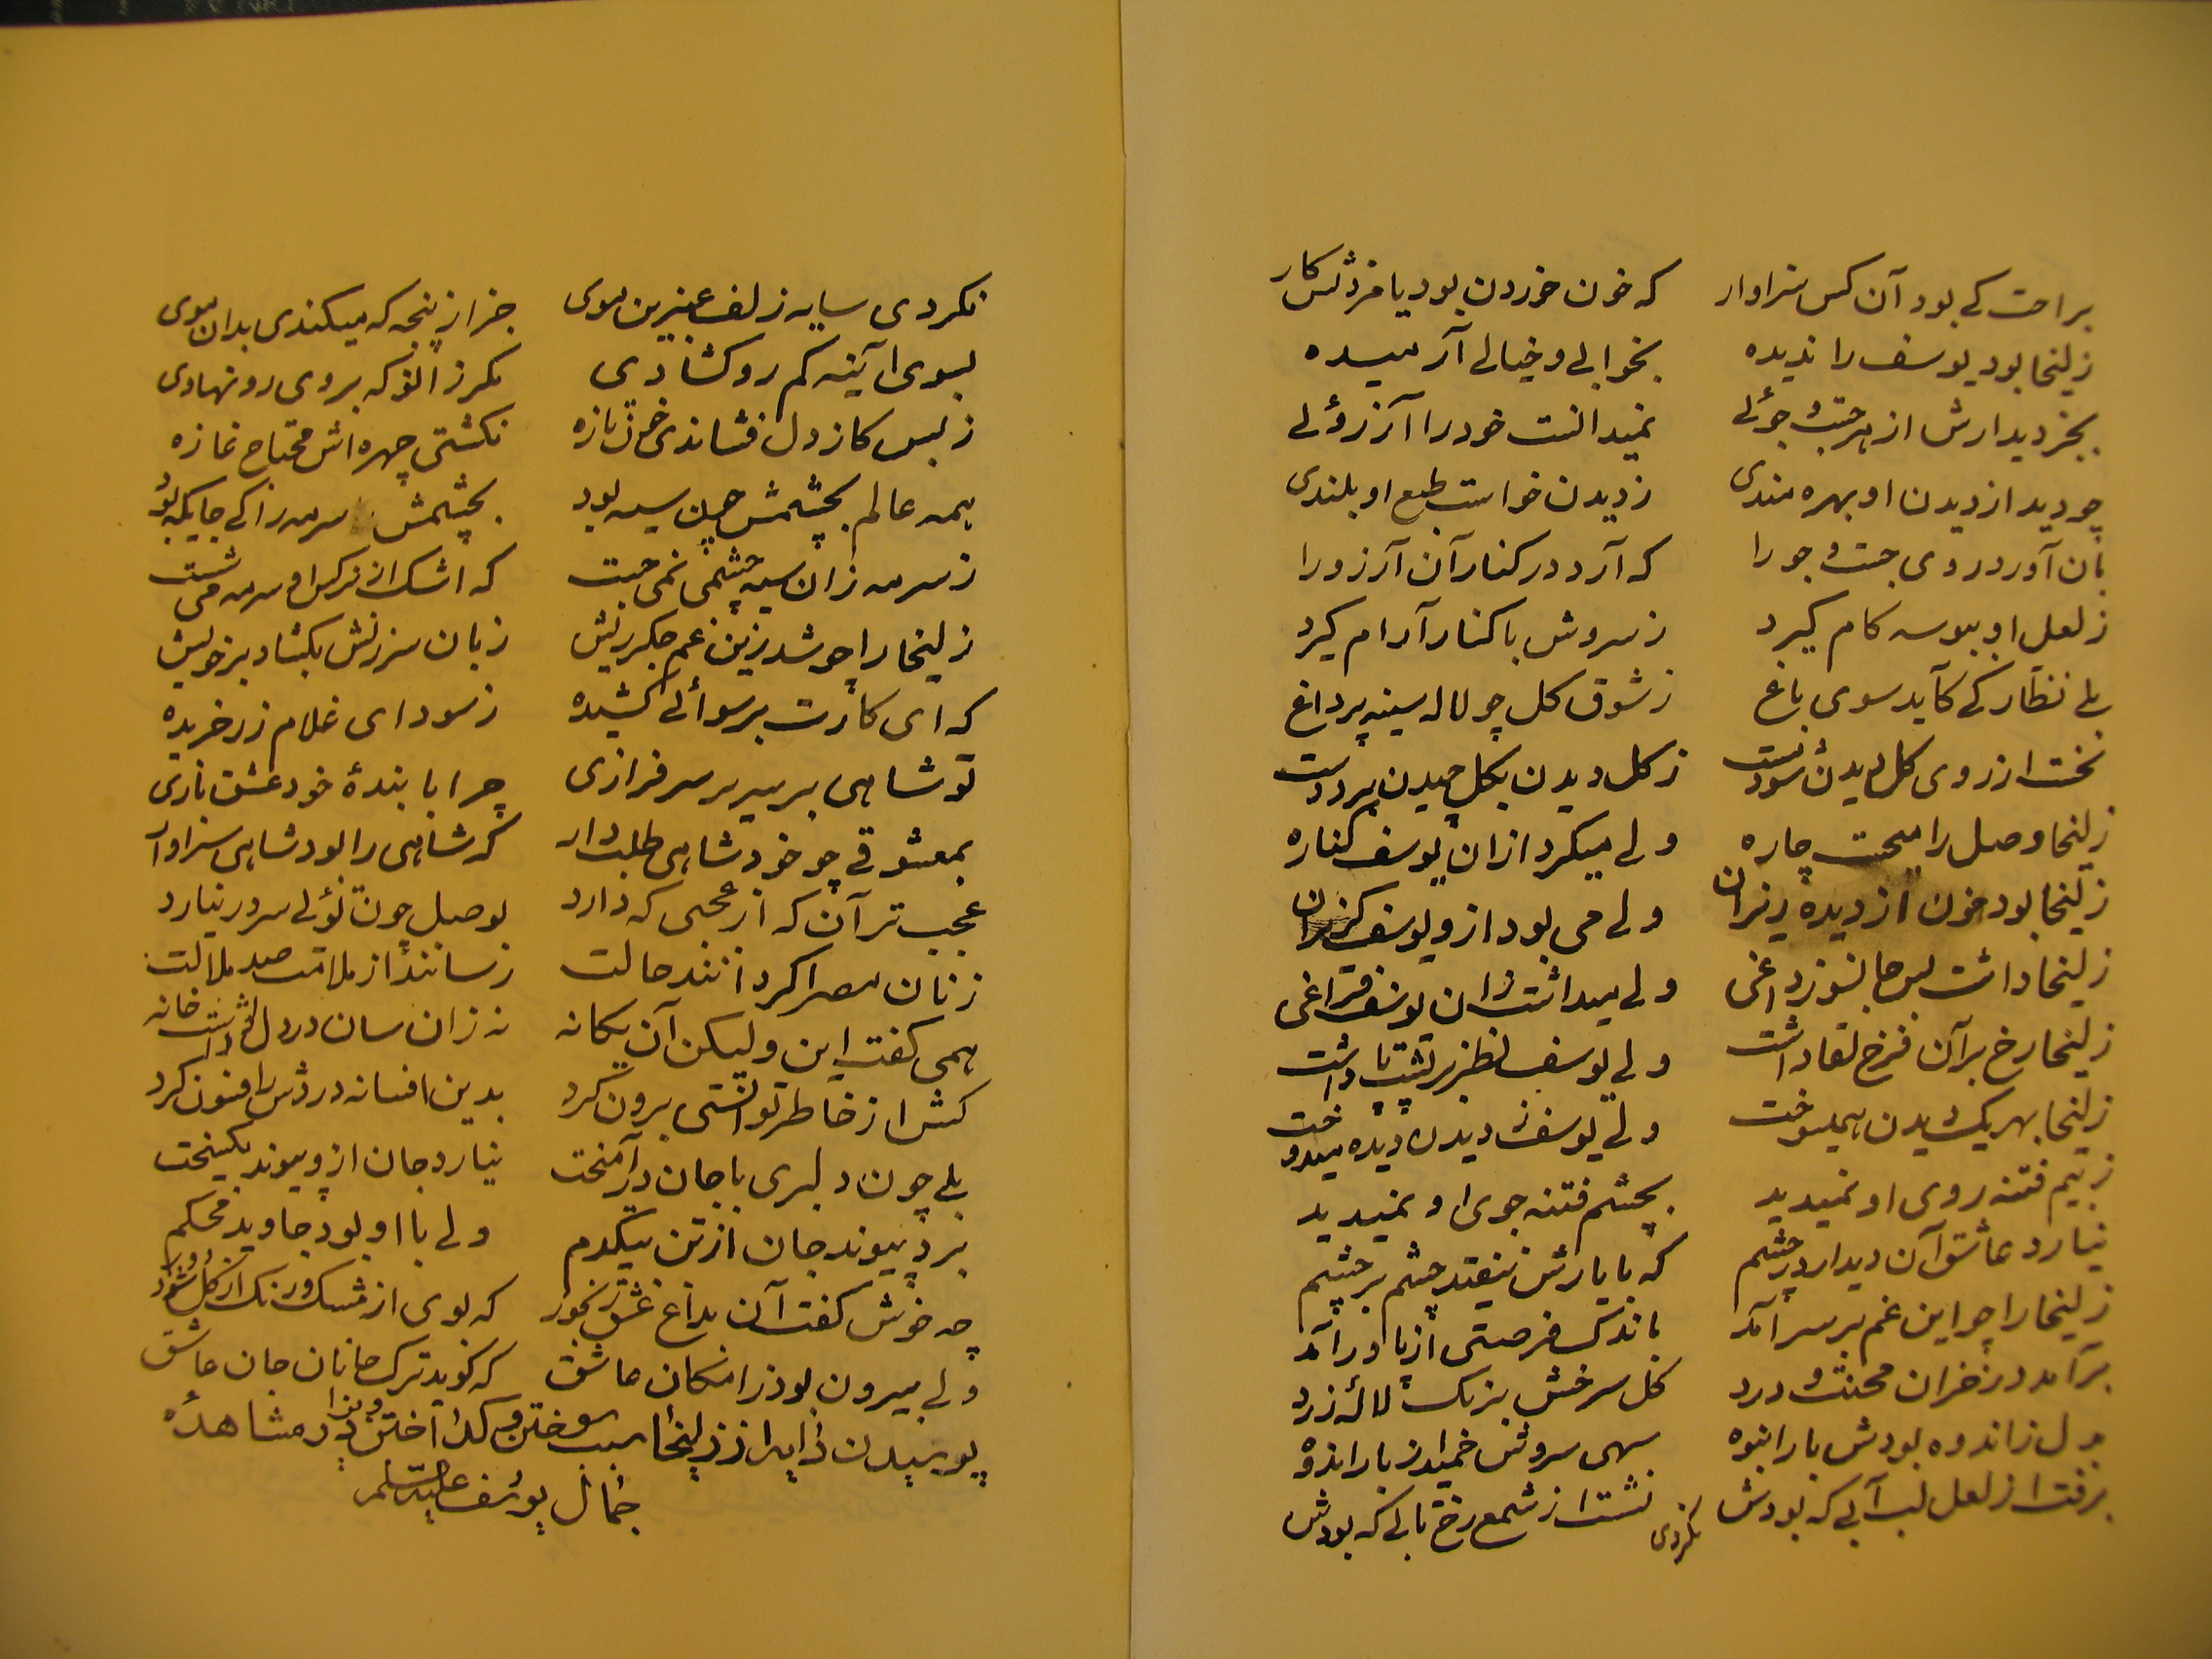 براحت کے بود آن کس سزاوار که خون خوردن بود با مزدش کار
زلیخا بود یوسف را ندیده بخوابے و خیالے آرمیده
بجز دیدارش از هر جست و جوئے نمیدانست خود را آرزوئے
چو دید از دیدن او بهره مندی ز دیدن خواست طبع او بلندی
بان آورد روی جست و جو را که آرد در کنار آن آرزو را
ز لعل او ببوسه کام گیرد ز سروش با کنار آرام گیرد
بلے نظارکے کآید سوی باغ ز شوق کل چو لاله سینه پر داغ
نخست از روی کل دیدن شود مست ز کل دیدن بکل چیدن برد دست
زلیخا وصل را میجست چاره ولے میکرد ازان یوسف کناره
زلیخا بود خون از دیده ریزان ولے می بود ازو یوسف کریزان
زلیخا داشت بس جانسوز داغی ولے میداشت زان یوسف فراغی
زلیخا رخ بر آن فرخ لقا داشت ولے یوسف نظر بر پشت پا داشت
زلیخا بهر یک دیدن همیسوخت ولے یوسف ز دیدن دیده میدوخت
ز بیم فتنه روی او نمیدید بچشم فتنه جوی او نمیدید
نیارد عاشق آن دیدار در چشم که با یارش نیفتد چشم بر چشم
زلیخا را چو این غم بر سر آمد باندک فرصتی از پا در آمد
بر آمد در خزان محنت و درد کل سرخش برنک لاله زرد
بدل ز اندوه بودش بار انبوه سهی سروش خمید از بار اندوه
برفت از لعل لب آبے که بودش نشست از شمع رخ تابے که بودش
نکردی
نکردی سایه زلف عنبرین موی جز از پنجه که میکندی بدان موی
بسوی آینه کم رو کشادی مکر زانو که بر وی رو نهادی
ز بس کز دل فشاندی خون تازه نکشتی چهره اش محتاج غازه
همه عالم بچشمش چون سیه بود بچشمش سرمه را کے جایکه بود
ز سرمه زان سیه چشمی نمی جست که اشک از نرکس او سرمه می شست
زلیخا را چو شد زین غم جکر ریش زبان سرزنش بکشاد بر خویش
که ای کارت برسوائے کشیده ز سودای غلام زر خریده
تو شاهی بر سریر سرفرازی چرا با بندۀ خود عشق بازی
بمعشوقے چو خود شاهی طلب دار که شاهی را بود شاهی سزاوار
عجب تر آن که از عجبی که دارد بوصل چون توئے سر در نیارد
زنان مصر اکر دانند حالت رسانند از ملامت صد ملالت
همی کفت این و لیکن آن یکانه نه زان سان در دلش داشت خانه
کش از خاطر توانستی برون کرد بدین افسانه دردش را فسون کرد
بلے چون دلبری با جان در آمیخت نیارد جان ازو پیوند بکسیخت
برد پیوند جان از تن بیکدم ولے با او بود جاوید محکم
چه خوش کفت آن بداغ عشق رنجور که بوی از مشک و رنک از کل شود دور
ولے بیرون بود ز امکان عاشق که کوید ترک جانان جان عاشق
پرسیدن دایه از زلیخا سبب سوختن و کداختن وی را در مشاهدۀ
جمال یوسف علیه السلام